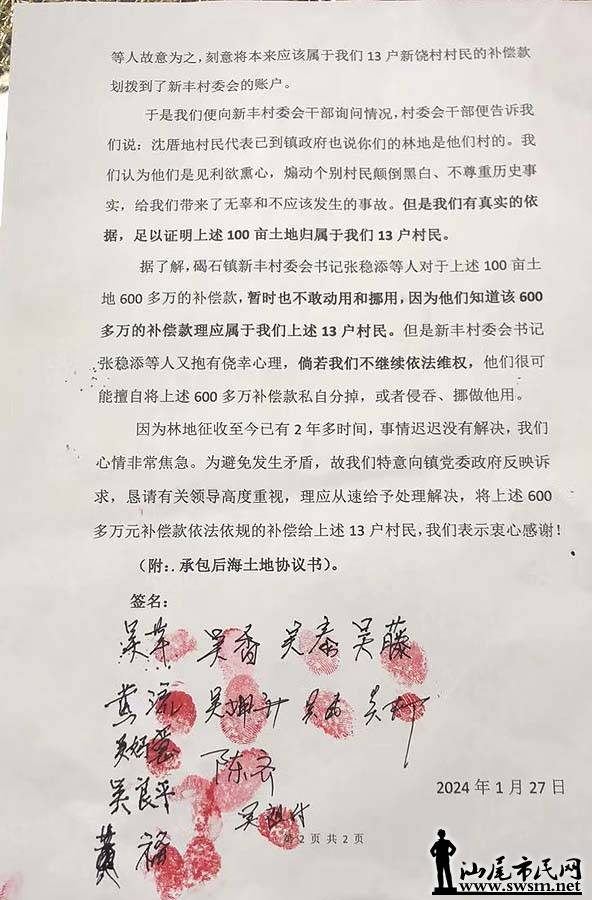 等人故意为之，刻意将本来应该属于我们 13 户新饶村村民的补偿款
划拨到了新丰村委会的账户。
于是我们便向新丰村委会干部询问情况，村委会干部便告诉我
们说：沈厝地村民代表已到镇政府也说你们的林地是他们村的。我
们认为他们是见利欲熏心，煽动个别村民颠倒黑白、不尊重历史事
实，给我们带来了无辜和不应该发生的事故。但是我们有真实的依
据，足以证明上述 100 亩土地归属于我们 13 户村民。
据了解，碣石镇新丰村委会书记张稳添等人对于上述 100 亩土
地 600 多万的补偿款，暂时也不敢动用和挪用，因为他们知道该 600
多万的补偿款理应属于我们上述 13 户村民。但是新丰村委会书记
张稳添等人又抱有侥幸心理，倘若我们不继续依法维权，他们很可
能擅自将上述 600 多万补偿款私自分掉，或者侵吞、挪做他用。
因为林地征收至今已有 2 年多时间，事情迟迟没有解决，我们
心情非常焦急。为避免发生矛盾，故我们特意向镇党委政府反映诉
求，恳请有关领导高度重视，理应从速给予处理解决，将上述 600
多万元补偿款依法依规的补偿给上述 13 户村民，我们表示衷心感谢！
（附：. 承包后海土地协议书）。
签名：
吴香 吴泰 吴藤
吴
陈
吴良平
黄
2024 年 1 月 27 日
第 2 页 共 2 页
汕尾市民网
www.swsm.net